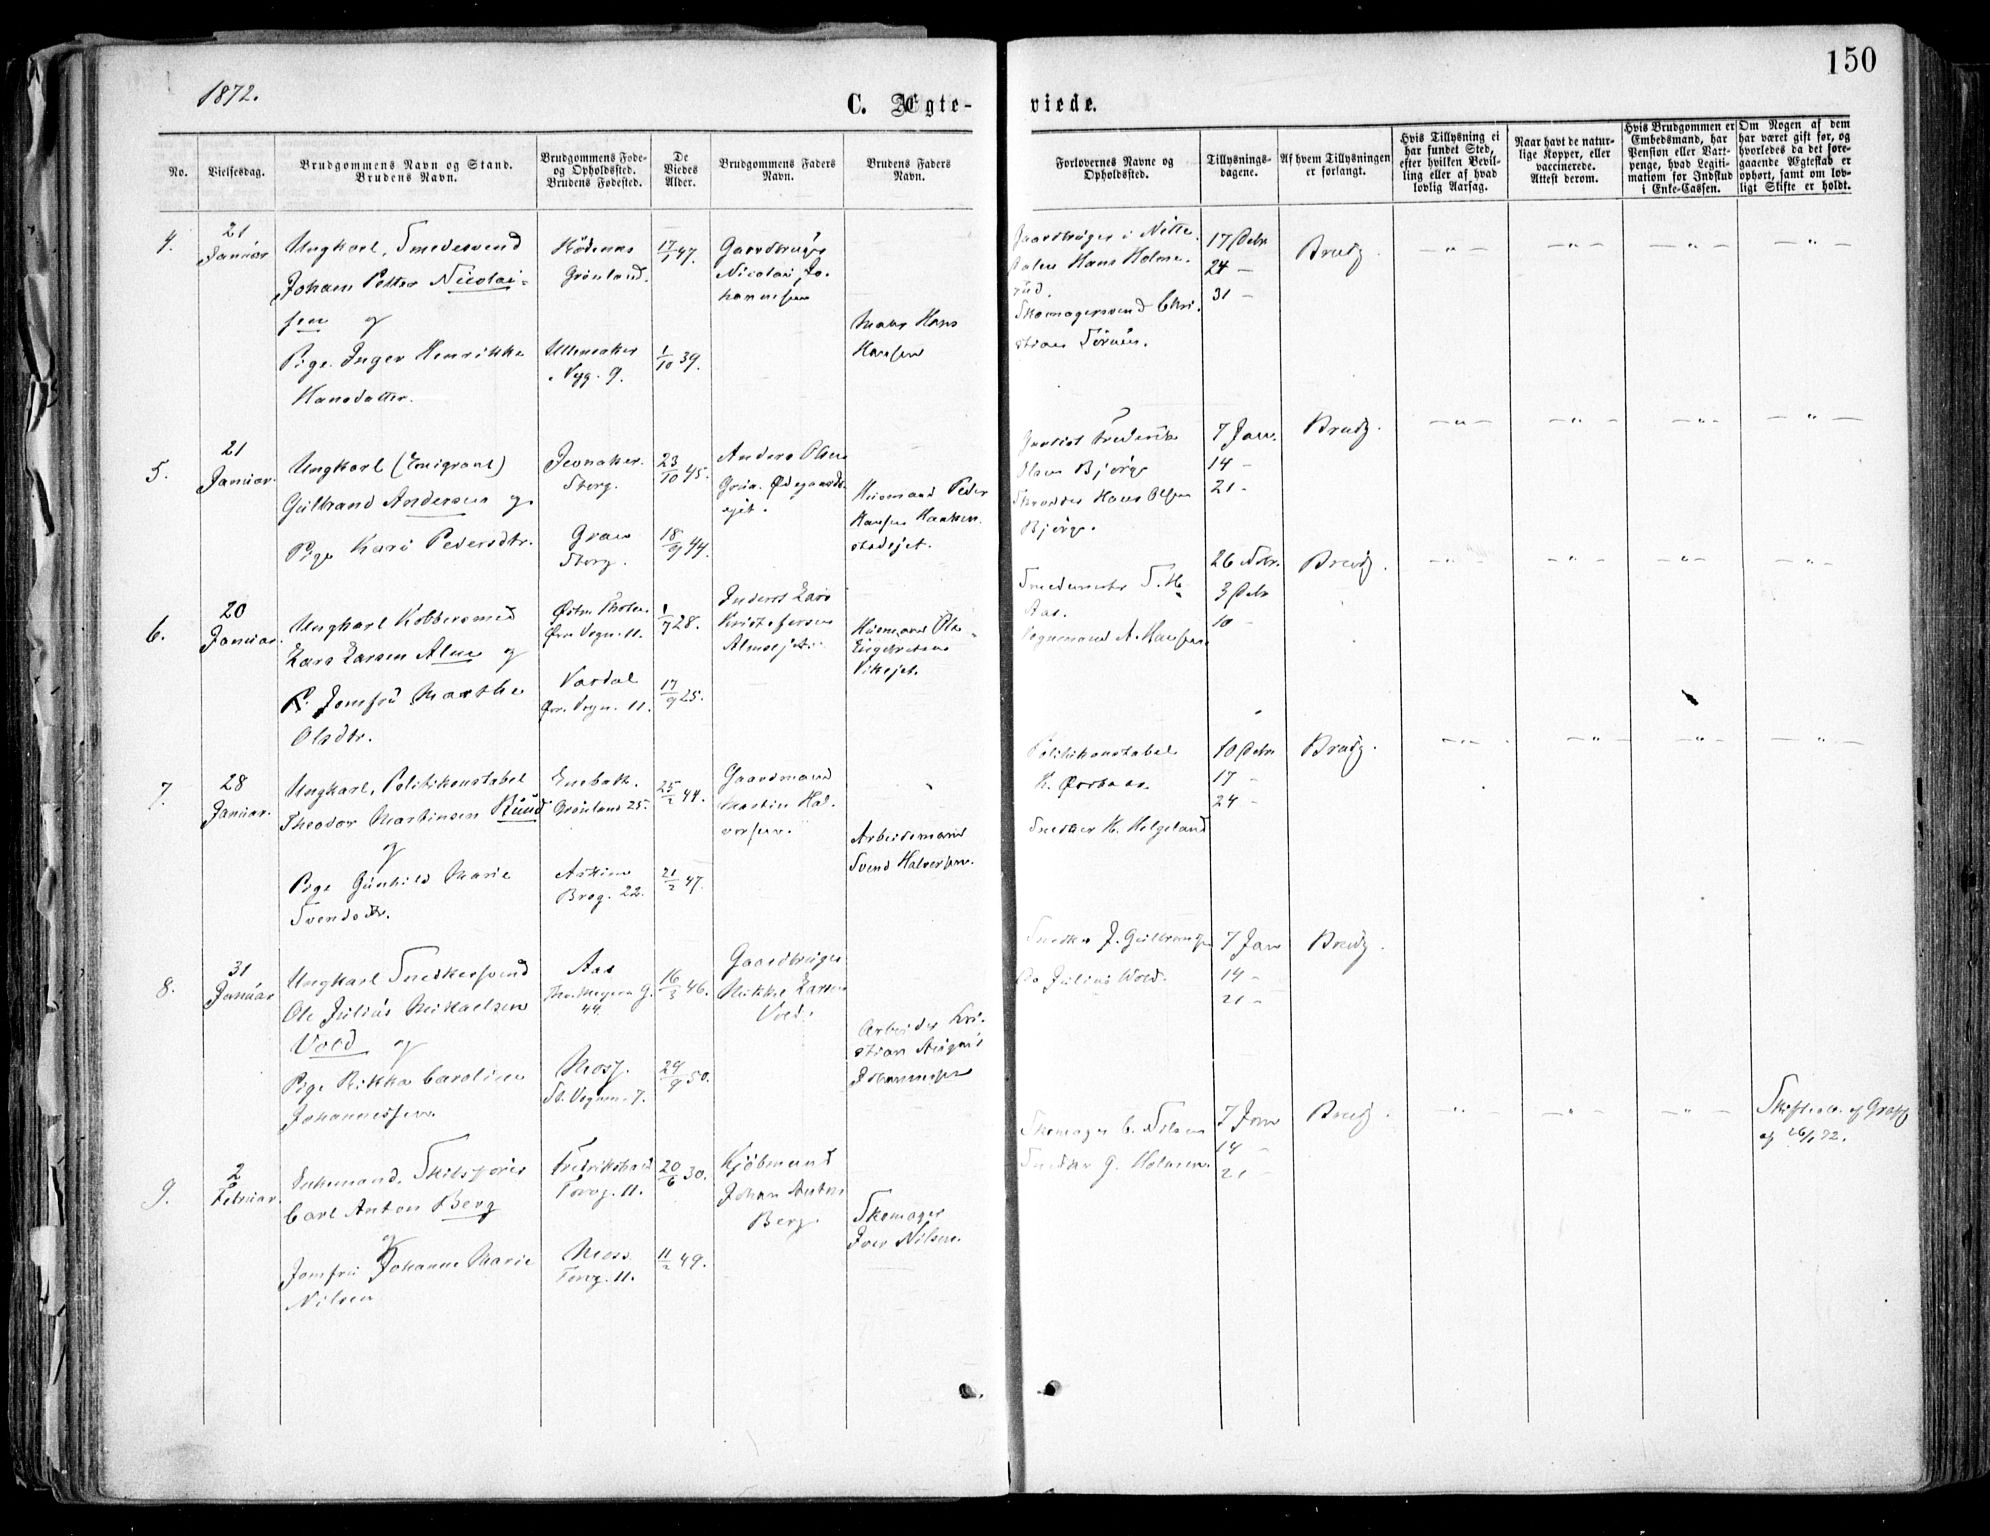 150
1872.
C. Ægte-
viede.
No.
Vielsesdag.
Brudgommens Navn og Stand.
Brudens Navn.
Brudgommens Føde-
og Opholdssted.
Brudens Fødested.
De
Viedes
Alder.
Brudgommens Faders
Navn.
Brudens Faders
Navn.
Forlovernes Navne og
Opholdssted.
Tillysnings-
dagene.
Af hvem Tillysningen
er forlangt.
Hvis Tillysning ei
har fundet Sted,
efter hvilken Bevil-
ling eller af hvad
lovlig Aarsag.
Naar havt de natur-
lige Kopper, eller
vaccinerede.
Attest derom.
Hvis Brudgommen er
Embedsmand, har
Pension eller Vart-
penge, hvad Legiti-
mation for Indskud
i Enke-Cassen.
Om Nogen af dem
har været gift før, og
hvorledes da det fore-
gaaende Ægteskab er
ophørt, samt om lov-
ligt Skifte er holdt.
4.
21
Januar
Ungkarl, Smedesvend
Johan Petter Nicolai-
sen og
Pige Inger Henrikke
Hansdatter.
Rødenes
Grønland.
Ullensaker
Nyg. 9.
17/7 47.
1/10 39.
Gaardbruger
Nicolai Jo-
hannesen
Matr Hans
Hansen
Gaardbruger i Nitte-
dalen Hans Holme-
rud.
Skomagersvend Chri-
stian
17 Debr
24 —
31 —
Brudg.
5.
21
Januar.
Ungkarl (Emigrant)
Gulbrand Andersen og
Pige Kari Pedersdtr.
Jevnaker.
Storg.
Gran
Storg.
23/10 45.
18/9 44.
Anders Olsen
Gran. Ødegaards-
ejet.
Husmand Peder
Hansen Haaken-
stadejet.
Frederik
Olsen Bjørge
Skrædder Hans Olsen
Bjørge.
7 Jan.
14 —
21 —
Brudg.
6.
20
Januar.
Ungkarl Kobbersmed
Lars Larsen Alm og
P. Jomfru Marthe
Olsdtr.
Østre Thoten.
Øvr. Vogn. 11.
Vardal
Øvr. Vogn. 11.
1/7 28.
17/9 25.
Inderst Lars
Kristofersen
Almsejet.
Husmand Ole
Engebretsen
Vikejet.
Smedemester T. H.
Aas.
Vognmand A. Hansen
26 Nobr.
3 Debr
10 —
Brudg.
7.
28
Januar.
Ungkarl, Politikonstabel
Theodor Martinsen Ruud
og
Pige Gunhild Marie
Svendsdtr.
Enebakk.
Grønland 25.
Askim
Brog. 22.
25/2 44.
21/2 47.
Gaardmand
Martin Hal-
vorsen.
Arbeidsmand
Svend Halvorsen.
Politikonstabel
K. Ørbæk
Snedker H. Helgeland
10 Debr
17 —
24 —
Brudg.
8.
31
Januar
Ungkarl Snedkersvend
Ole Julius Mikaelsen
Vold og
Pige Rikka Caroline
Johannessen.
Aas
G.
44
Moss.
St. Vognm. 7.
16/3 46.
29/9 50.
Gaardbruger
Mikkel Larsen
Vold.
Arbeider Kri-
stian August
Johannesen
Snedker J. Gulbrandsen
Do Julius Wold.
7 Jan
14 —
21 —
Brudg.
9.
2
Februar.
Enkemand,
Carl Anton Berg
og
Jomfru Johanne Marie
Nilsen
Fredrikshald
Torvg. 11.
Moss
Torvg. 11.
20/6 30.
11/2 49.
Kjøbmand
Johan Anton
Berg.
Skomager
Iver Nilsen.
Skomager C. Nilsen
Snedker G. Holmsen.
7 Jan
14 —
21 —
Brudg.
Skifteatt. af
af 26/1 72.